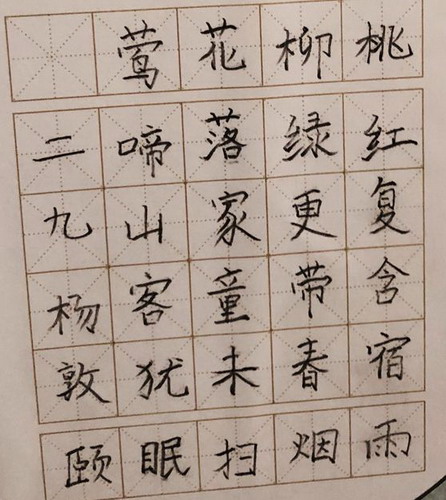 桃红复含宿雨
柳绿更带春烟
花落家童未扫
莺啼山客犹眠
二九杨敦颐